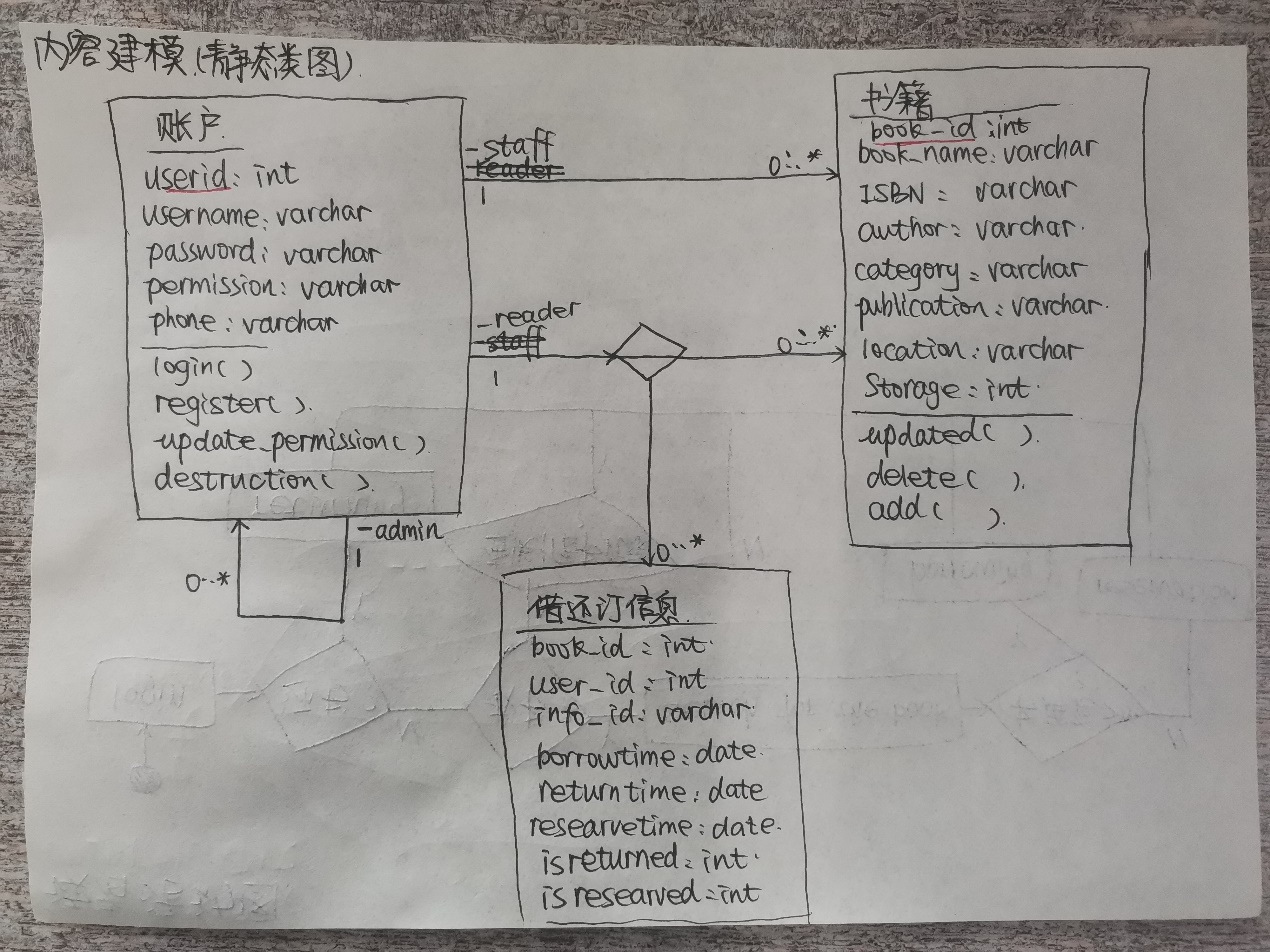 内容建模(静态类图).
账户
userid: int
username: varchar
password: varchar
permission: varchar
phone: varchar
login( )
register( ).
update_permission( )
destruction( )
-staff
reader
1
0..*
-reader
staff
1
0..*
书籍
book_id: int
book_name: varchar
ISBN: varchar
author: varchar
category: varchar
publication: varchar
location: varchar
Storage: int
updated( ).
delete( ).
add( ).
-admin
1
0..*
0..*
借还订信息
book_id: int
user_id: int
info_id: varchar
borrowtime: date
returntime: date
researvetime: date
isreturned: int
isresearved: int